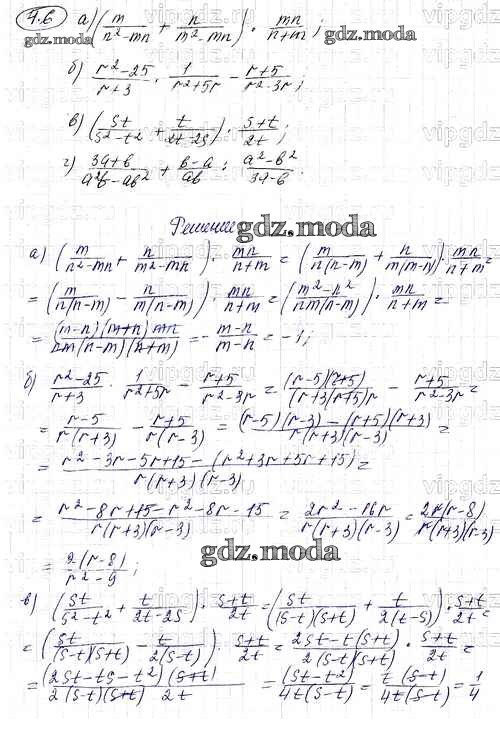 4.6 а) (m/(n²-mn) + n/(m²-mn)) · mn/(n+m);
gdz.moda
б) (r²-25)/(r+3) · 1/(r²+5r) - (r+5)/(r²-3r);
в) (st/(s²-t²) + t/(2t-2s)) · (s+t)/2t;
г) (3a+b)/(a²b-ab²) + (b-a)/ab : (a²-b²)/(3a-b)
Решение gdz.moda
а) (m/(n²-mn) + n/(m²-mn)) · mn/(n+m) = (m/(n(n-m)) + n/(m(m-n))) · mn/(n+m) =
= (m/(n(n-m)) - n/(m(n-m))) · mn/(n+m) = ((m²-n²)/(nm(n-m))) · mn/(n+m) =
= (m-n)(m+n)mn/(nm(n-m)(n+m)) = -(m-n)/(m-n) = -1;
б) (r²-25)/(r+3) · 1/(r²+5r) - (r+5)/(r²-3r) = (r-5)(r+5)/((r+3)(r+5)r) - (r+5)/(r²-3r) =
= (r-5)/(r(r+3)) - (r+5)/(r(r-3)) = ((r-5)(r-3) - (r+5)(r+3))/(r(r+3)(r-3)) =
= (r²-3r-5r+15-(r²+3r+5r+15))/(r(r+3)(r-3)) =
= (r²-8r+15-r²-8r-15)/(r(r+3)(r-3)) = (2r²-16r)/(r(r+3)(r-3)) = 2r(r-8)/(r(r+3)(r-3))
= 2(r-8)/(r²-9);
gdz.moda
в) (st/(s²-t²) + t/(2t-2s)) · (s+t)/2t = (st/((s-t)(s+t)) + t/(2(t-s))) · (s+t)/2t =
= (st/((s-t)(s+t)) - t/(2(s-t))) · (s+t)/2t = (2st-t(s+t))/(2(s-t)(s+t)) · (s+t)/2t =
= (2st-ts-t²)(s+t)/(2(s-t)(s+t) 2t) = (st-t²)/(4t(s-t)) = t(s-t)/(4t(s-t)) = 1/4